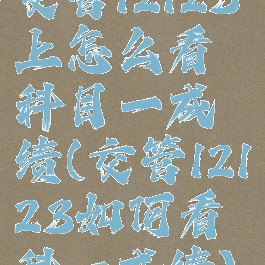 交管12123
上怎么看
科目一成
绩(交管121
23如何看
科一成绩)